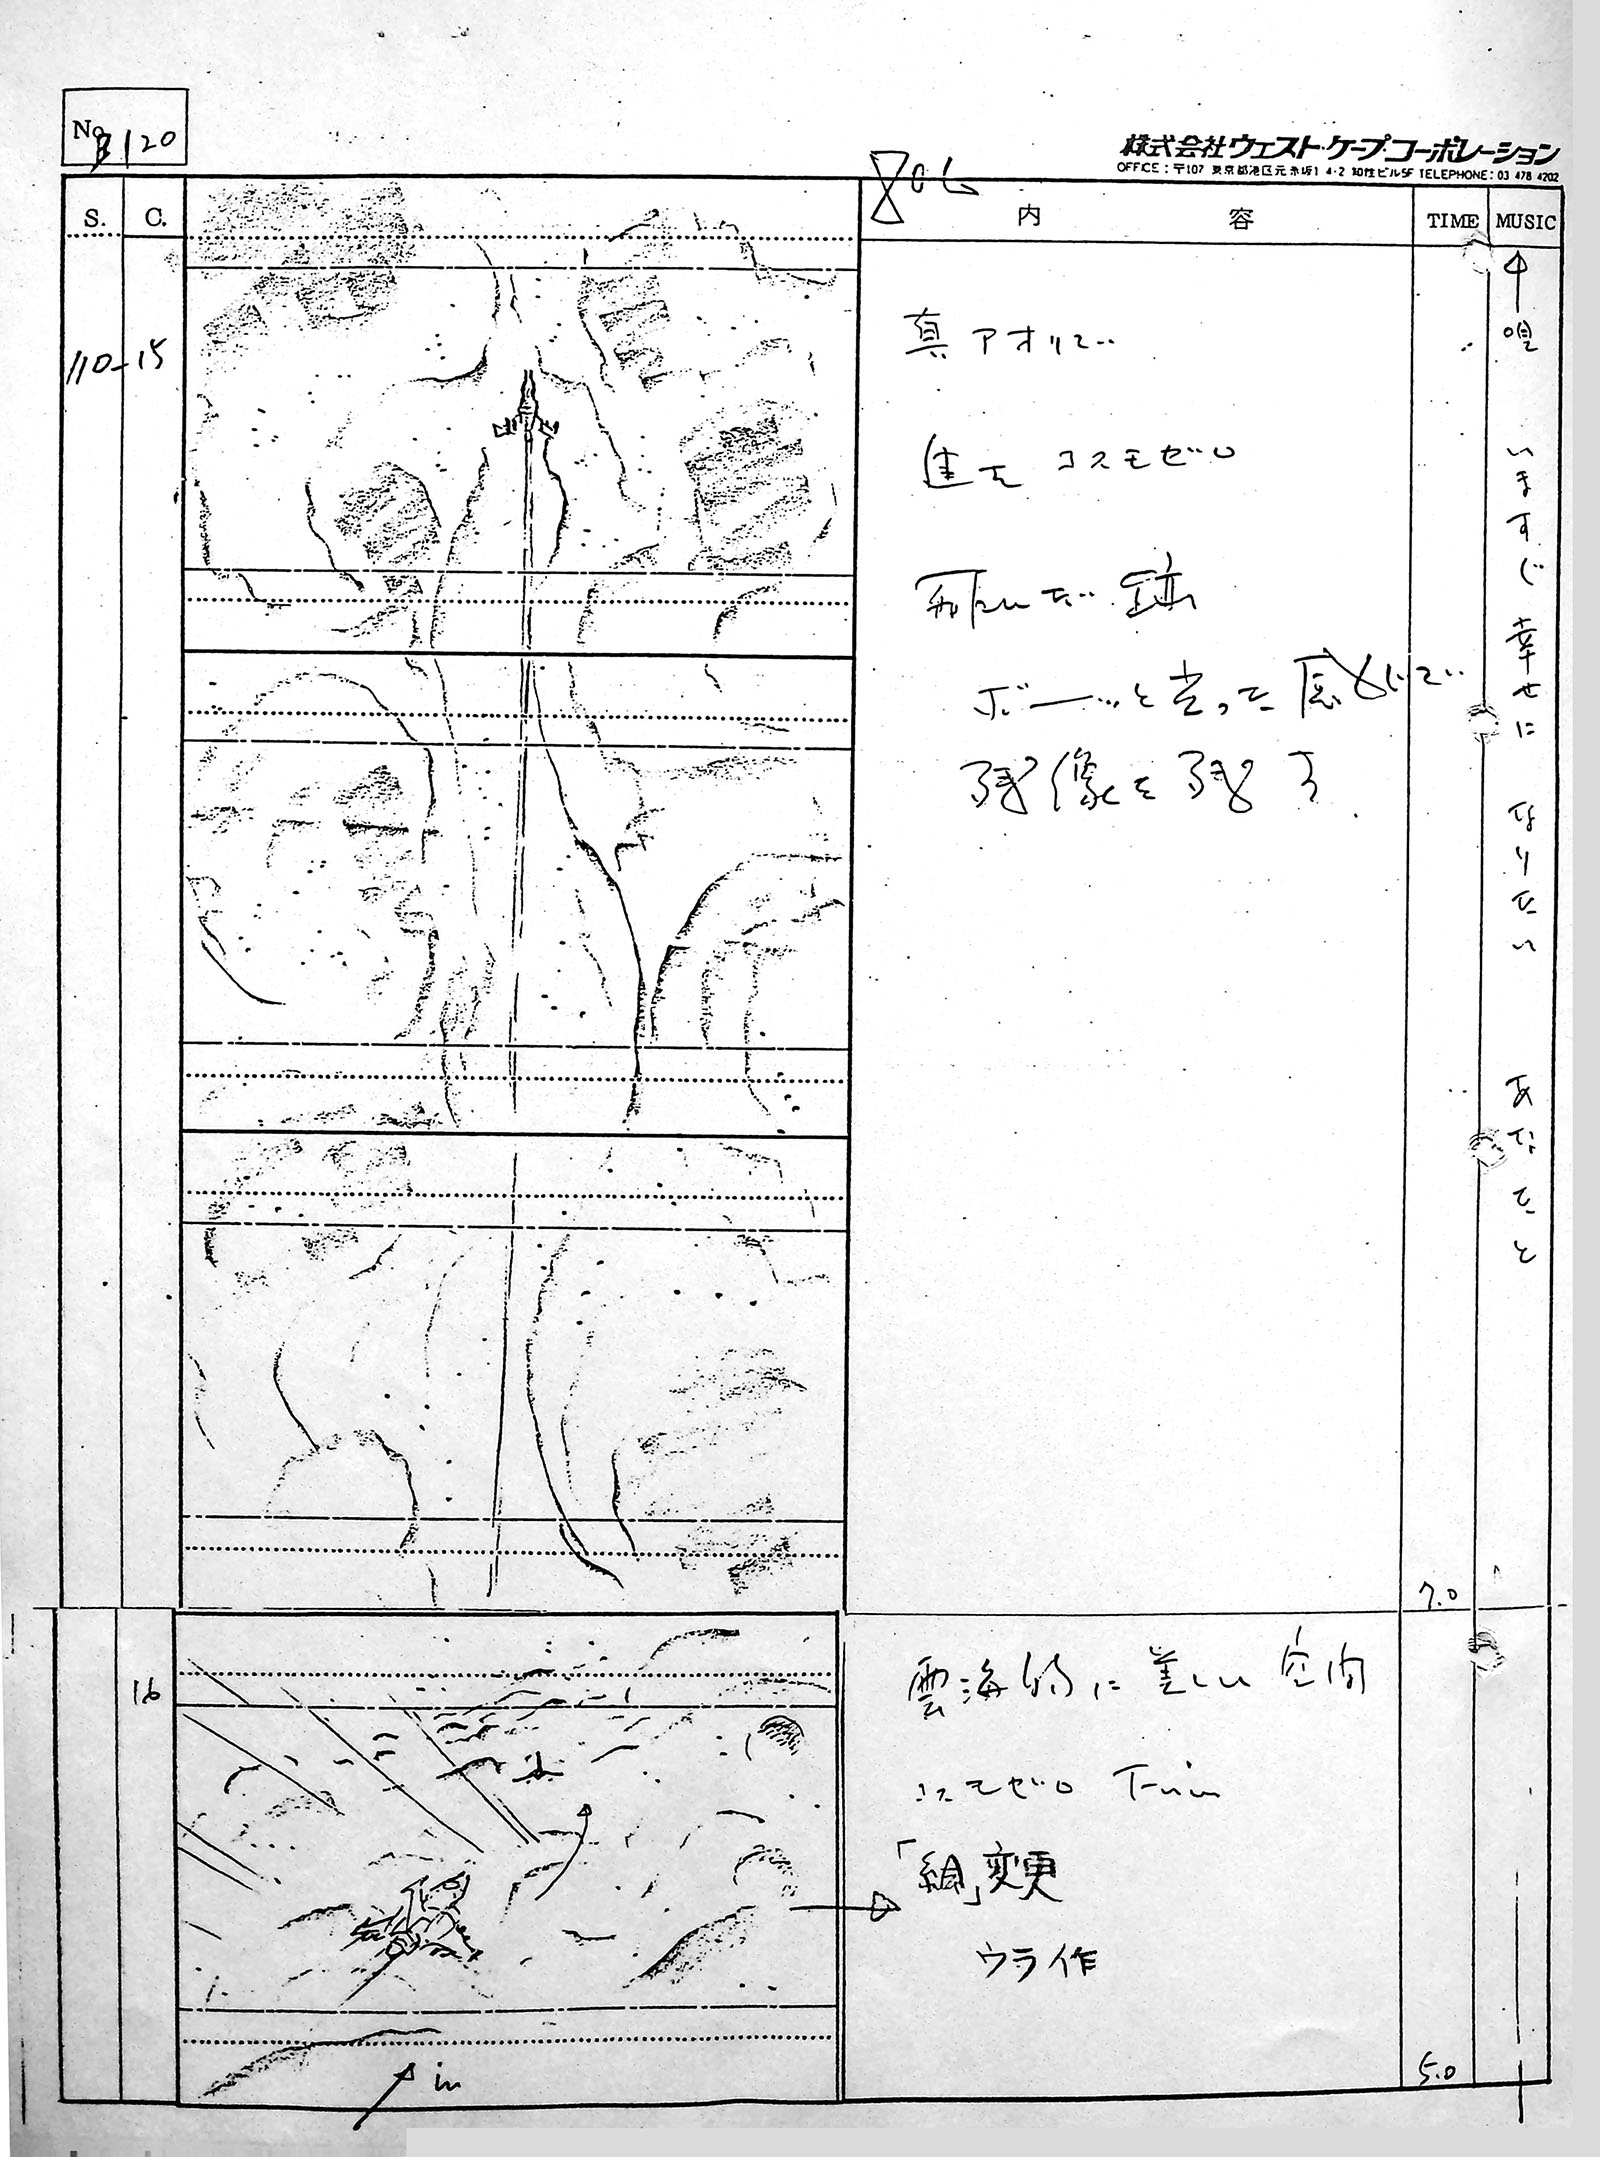 No. B120
株式会社ウェスト・ケープ・コーポレーション
OFFICE:〒107 東京都港区元赤坂1-4-2 知性ビル5F TELEPHONE:03 478 4202
S. C. 内容 TIME MUSIC
110-15
真アオリで‥
進む コスモゼロ
飛んだ跡
ボーーッと光った感じで‥
残像を残す
唄 いますぐ 幸せに なりたい あなたと
7.0
16
雲海的に美しい空間
コスモゼロ 下-in
「絵」変更
ウラ作
in
5.0